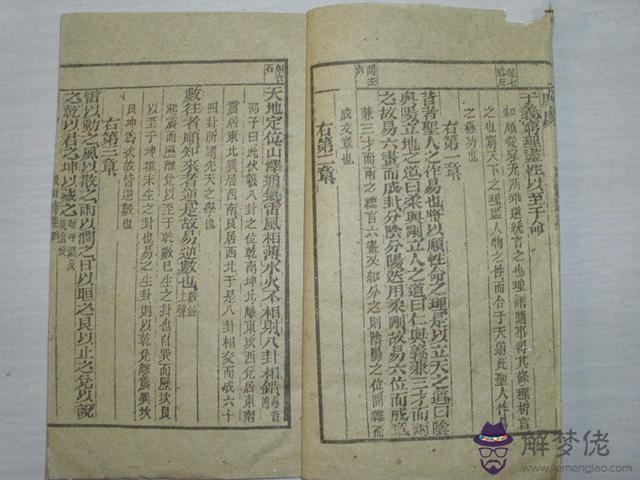 于義窮理盡性以至于命
和順從容无所乖逆統言之也理謂隨事得其條理析言
之也窮天下之理盡人物之性而合于天道此聖人作易
之極功也
右第一章
昔者聖人之作易也將以順性命之理是以立天之道曰陰
與陽立地之道曰柔與剛立人之道曰仁與義兼三才而兩
之故易六畫而成卦分陰分陽迭用柔剛故易六位而成章
兼三才而兩之總言六畫又細分之則陰陽之位間雜而
成文章也
右第二章
天地定位山澤通氣雷風相薄水火不相射八卦相錯
邵子曰此伏羲八卦之位乾南坤北離東坎西兌居東南
震居東北巽居西南艮居西北于是八卦相交而成六十
四卦所謂先天之學也
數往者順知來者逆是故易逆數也 數並上聲
起震而歷離兌以至于乾數已生之卦也自巽而歷坎艮
以至于坤推未生之卦也易之生卦則以乾兌離震巽坎
艮坤爲次故皆逆數也
右第三章
雷以動之風以散之雨以潤之日以晅之艮以止之兌以說
之乾以君之坤以藏之
解梦佬
www.jiemenglao.com